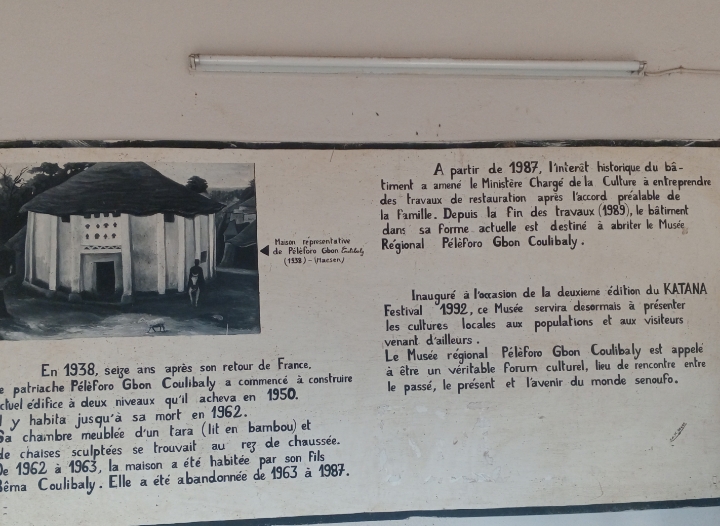 Maison représentative
de Péléforo Gbon Coulibaly
(1938) - (Maesen)
En 1938, seize ans après son retour de France,
e patriache Péléforo Gbon Coulibaly a commencé à construire
ctuel édifice à deux niveaux qu'il acheva en 1950.
l y habita jusqu'à sa mort en 1962.
Sa chambre meublée d'un tara (lit en bambou) et
de chaises sculptées se trouvait au rez de chaussée.
De 1962 à 1963, la maison a été habitée par son fils
Bêma Coulibaly. Elle a été abandonnée de 1963 à 1987.
A partir de 1987, l'interêt historique du bâ-
timent a amené le Ministère Chargé de la Culture à entreprendre
des travaux de restauration après l'accord préalable de
la famille. Depuis la fin des travaux (1989), le bâtiment
dans sa forme actuelle est destiné à abriter le Musée
Régional Péléforo Gbon Coulibaly.
Inauguré à l'occasion de la deuxieme édition du KATANA
Festival 1992, ce Musée servira desormais à présenter
les cultures locales aux populations et aux visiteurs
venant d'ailleurs.
Le Musée régional Péléforo Gbon Coulibaly est appelé
à être un véritable forum culturel, lieu de rencontre entre
le passé, le présent et l'avenir du monde senoufo.